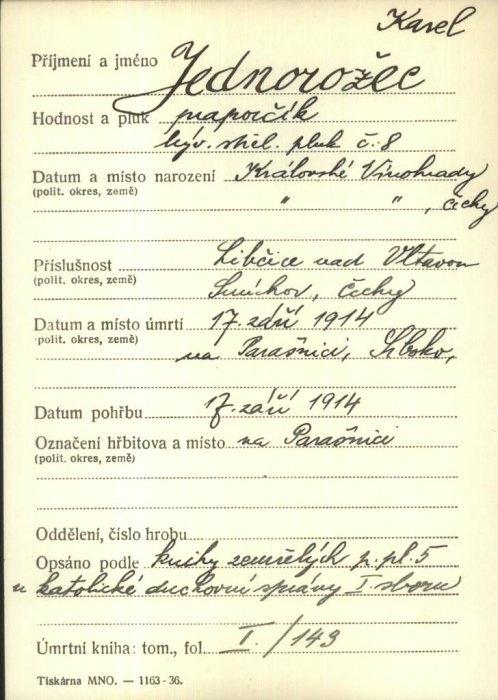 Karel
Příjmení a jméno Jednorožec
Hodnost a pluk praporčík
býv. střel. pluk č. 8
Datum a místo narození Královské Vinohrady
(polit. okres, země) " " , Čechy
Příslušnost Libčice nad Vltavou
(polit. okres, země)
Smíchov, Čechy
Datum a místo úmrtí 17. září 1914
(polit. okres, země)
na Parašnici, Srbsko,
Datum pohřbu 17. září 1914
Označení hřbitova a místo na Parašnici
(polit. okres, země)
Oddělení, číslo hrobu
Opsáno podle knihy zemřelých p. pl. 5
u katolické duchovní správy I. sboru
Úmrtní kniha: tom., fol. I. / 143
Tiskárna MNO. — 1163-36.